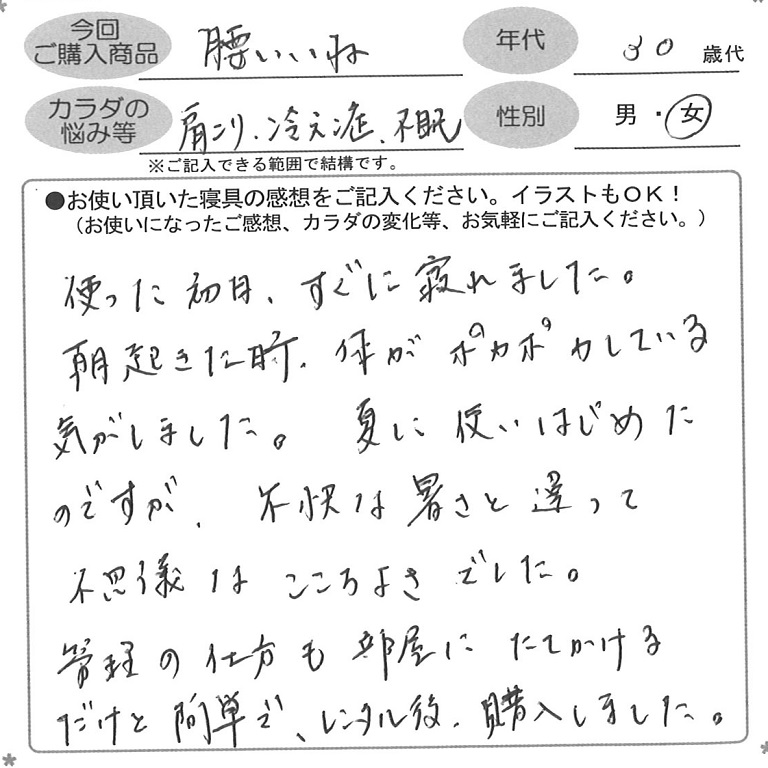 今回
ご購入商品
腰いいね
年代
30 歳代
カラダの
悩み等
肩こり、冷え症、不眠
性別
男・女
※ご記入できる範囲で結構です。
●お使い頂いた寝具の感想をご記入ください。イラストもOK!
(お使いになったご感想、カラダの変化等、お気軽にご記入ください。)
使った初日、すぐに寝れました。
朝起きた時、体がポカポカしている
気がしました。夏に使いはじめた
のですが、不快な暑さと違って
不思議なこころよさでした。
管理の仕方も部屋にたてかける
だけと簡単で、レンタル後、購入しました。